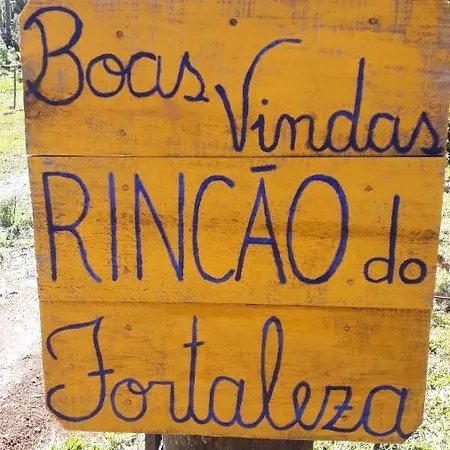 Boas
Vindas
RINCÃO do
Fortaleza